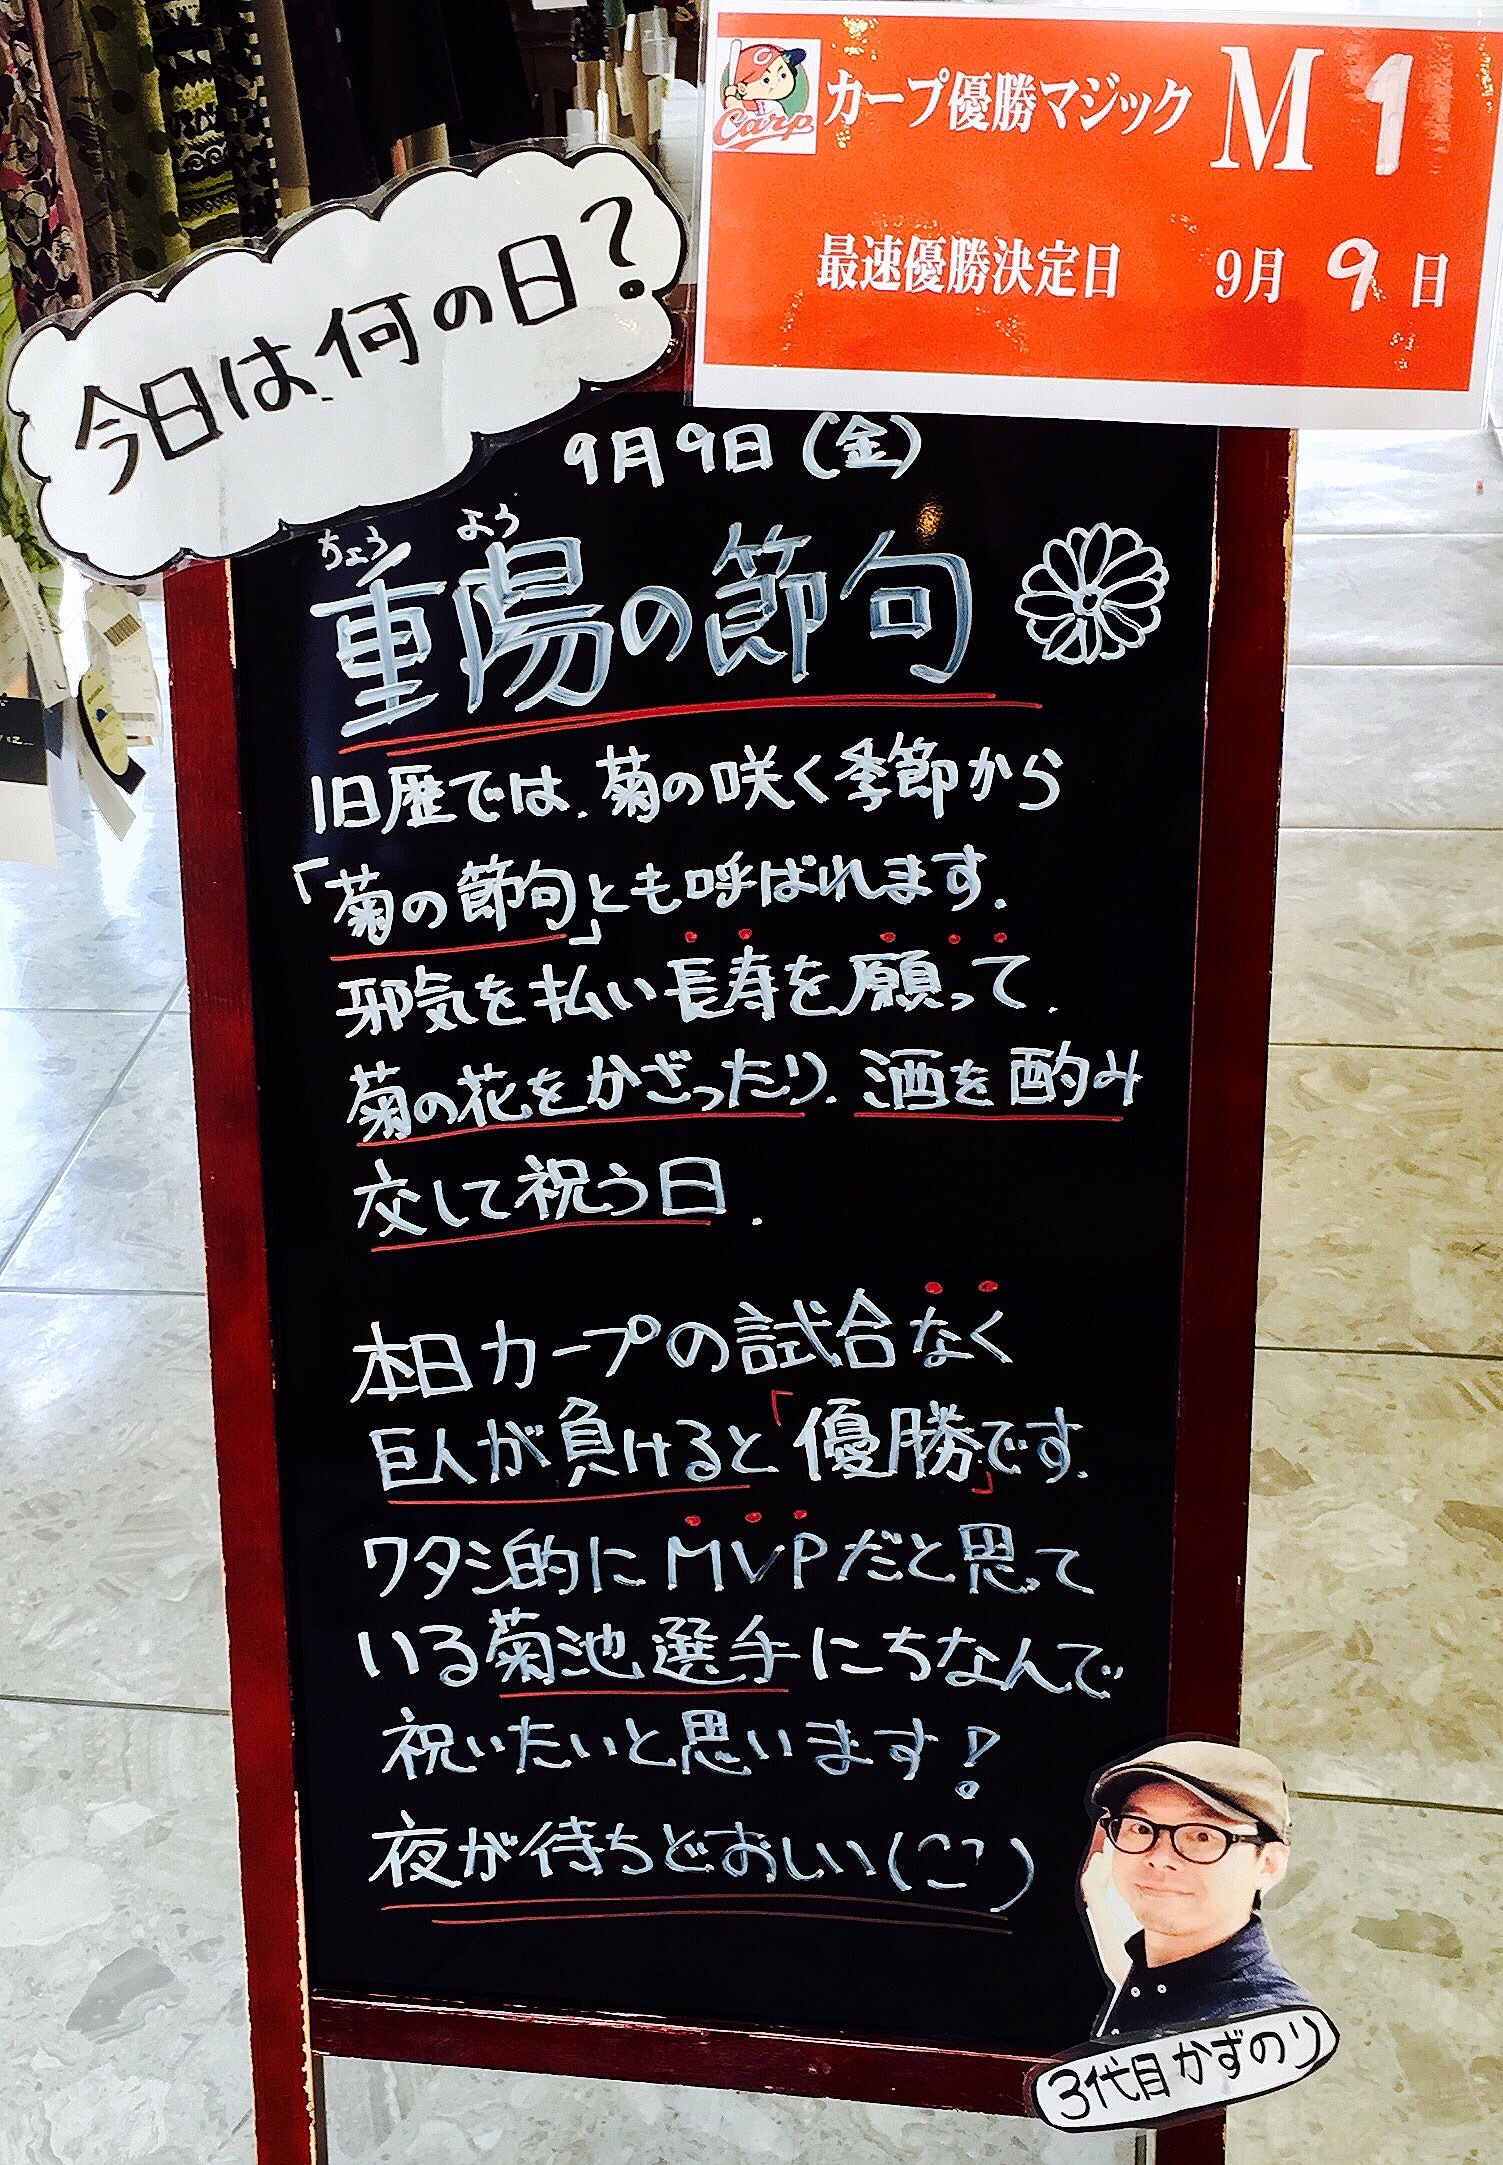 Carp
カープ優勝マジック M 1
最速優勝決定日 9月 9日
今日は、何の日?
9月9日(金)
ちょう よう
重陽の節句
旧暦では、菊の咲く季節から
「菊の節句」とも呼ばれます。
邪気を払い長寿を願って、
菊の花をかざったり、酒を酌み
交して祝う日。
本日カープの試合なく
巨人が負けると「優勝」です。
ワタシ的にMVPだと思って
いる菊池選手にちなんで
祝いたいと思います!
夜が待ちどおしい(^^)
3代目かずのり